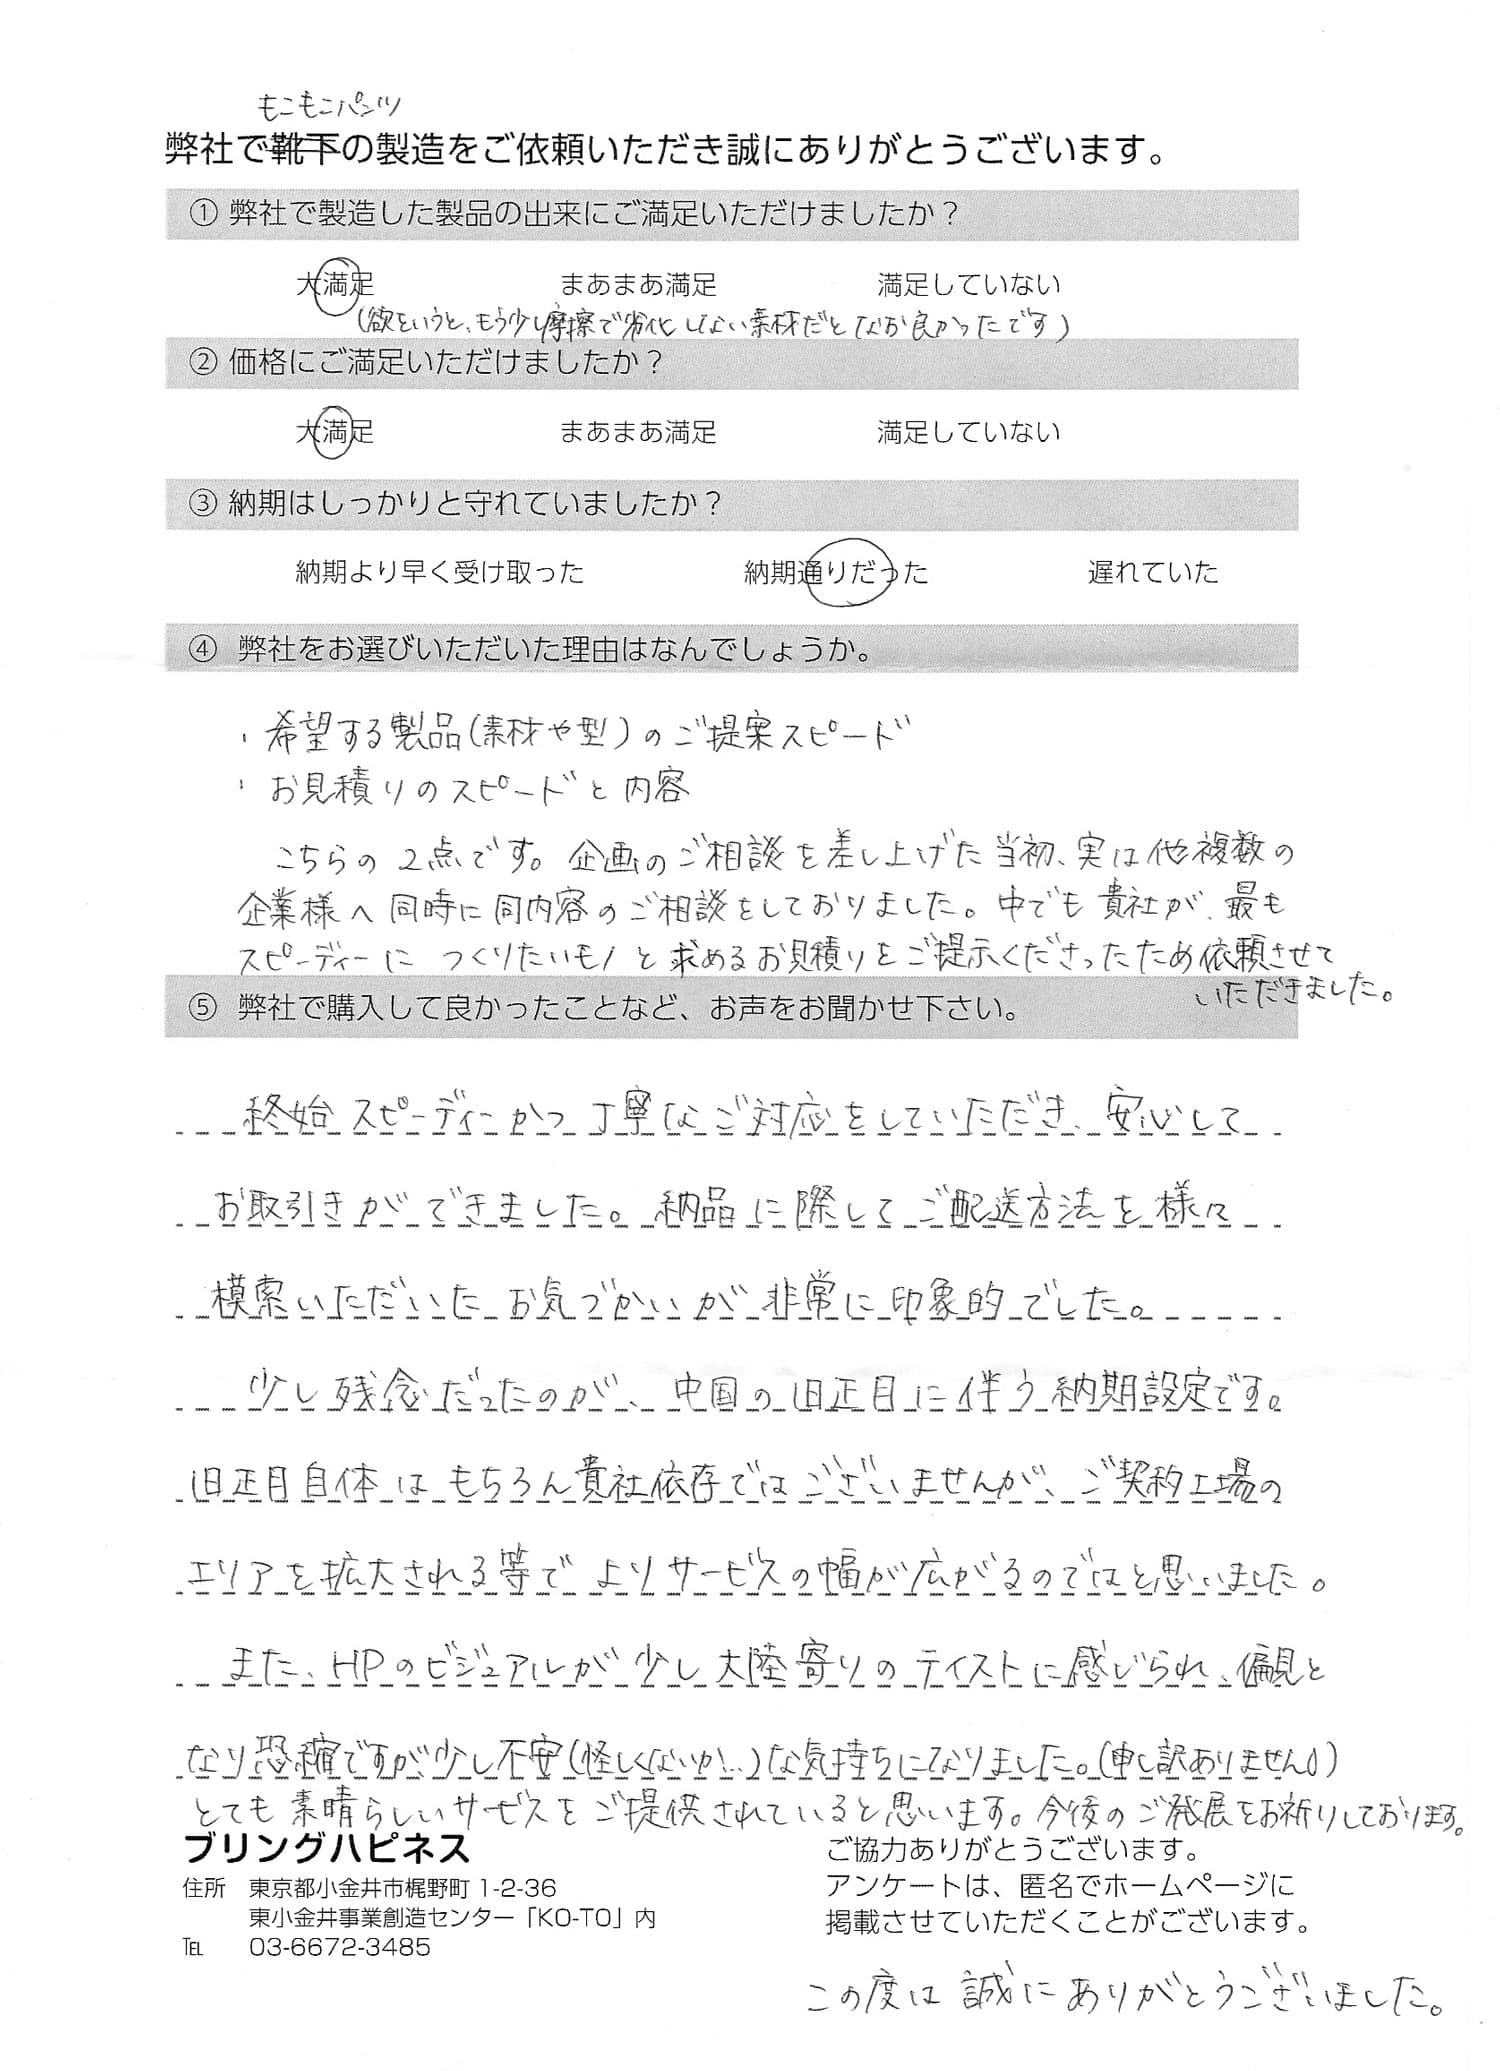 もこもこパンツ
弊社で靴下の製造をご依頼いただき誠にありがとうございます。
① 弊社で製造した製品の出来にご満足いただけましたか？
大満足 まあまあ満足 満足していない
(欲をいうと、もう少し摩擦で劣化しない素材だとなお良かったです)
② 価格にご満足いただけましたか？
大満足 まあまあ満足 満足していない
③ 納期はしっかりと守れていましたか？
納期より早く受け取った 納期通りだった 遅れていた
④ 弊社をお選びいただいた理由はなんでしょうか。
・希望する製品(素材や型)のご提案スピード
・お見積りのスピードと内容
こちらの2点です。企画のご相談を差し上げた当初、実は他複数の
企業様へ同時に同内容のご相談をしておりました。中でも貴社が、最も
スピーディーに つくりたいモノと求めるお見積りをご提示くださったため依頼させて
いただきました。
⑤ 弊社で購入して良かったことなど、お声をお聞かせ下さい。
終始スピーディーかつ丁寧なご対応をしていただき、安心して
お取引きができました。納品に際してご配送方法を様々
模索いただいたお気づかいが非常に印象的でした。
少し残念だったのが、中国の旧正月に伴う納期設定です。
旧正月自体はもちろん貴社依存ではございませんが、ご契約工場の
エリアを拡大される等でよりサービスの幅が広がるのではと思いました。
また、HPのビジュアルが少し大陸寄りのテイストに感じられ、偏見と
なり恐縮ですが、少し不安(怪しくないか…)な気持ちになりました。(申し訳ありません。)
とても素晴らしいサービスをご提供されていると思います。今後のご発展をお祈りしております。
ブリングハピネス
住所 東京都小金井市梶野町 1-2-36
東小金井事業創造センター「KO-TO」内
℡ 03-6672-3485
ご協力ありがとうございます。
アンケートは、匿名でホームページに
掲載させていただくことがございます。
この度は誠にありがとうございました。